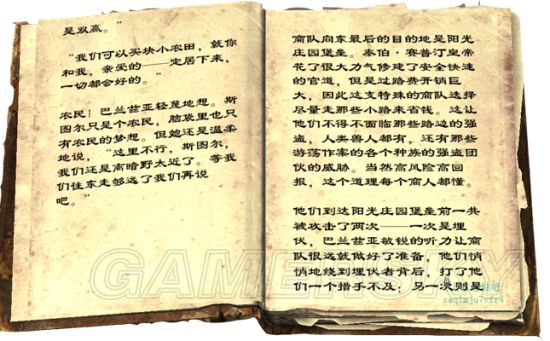 是双赢。”
“我们可以买块小农田，就你
和我，亲爱的——定居下来，
一切都会好的。”
农民！巴兰兹亚轻蔑地想。斯
图尔只是个农民，脑袋里也只
有农民的梦想。但她还是温柔
地说，“这里不行，斯图尔，
我们还是离暗野太近了。等我
们往东走够远了我们再说
吧。”
商队向东最后的目的地是阳光
庄园堡垒。泰伯·赛普汀皇帝
花了很大力气修建了安全快速
的官道，但是过路费开销巨
大，因此这支特殊的商队选择
尽量走那些小路来省钱。这让
他们不得不面临那些路边的强
盗，人类兽人都有，还有那些
游荡作案的各个种族的强盗团
伙的威胁。当然高风险高回
报，这个道理每个商人都懂。
他们到达阳光庄园堡垒前一共
被攻击了两次——一次是埋
伏，巴兰兹亚敏锐的听力让商
队很远就做好了准备，他们悄
悄地绕到埋伏者背后，打了他
们一个措手不及；另一次则是
GAMERSKY
zaq1mju7vfr4